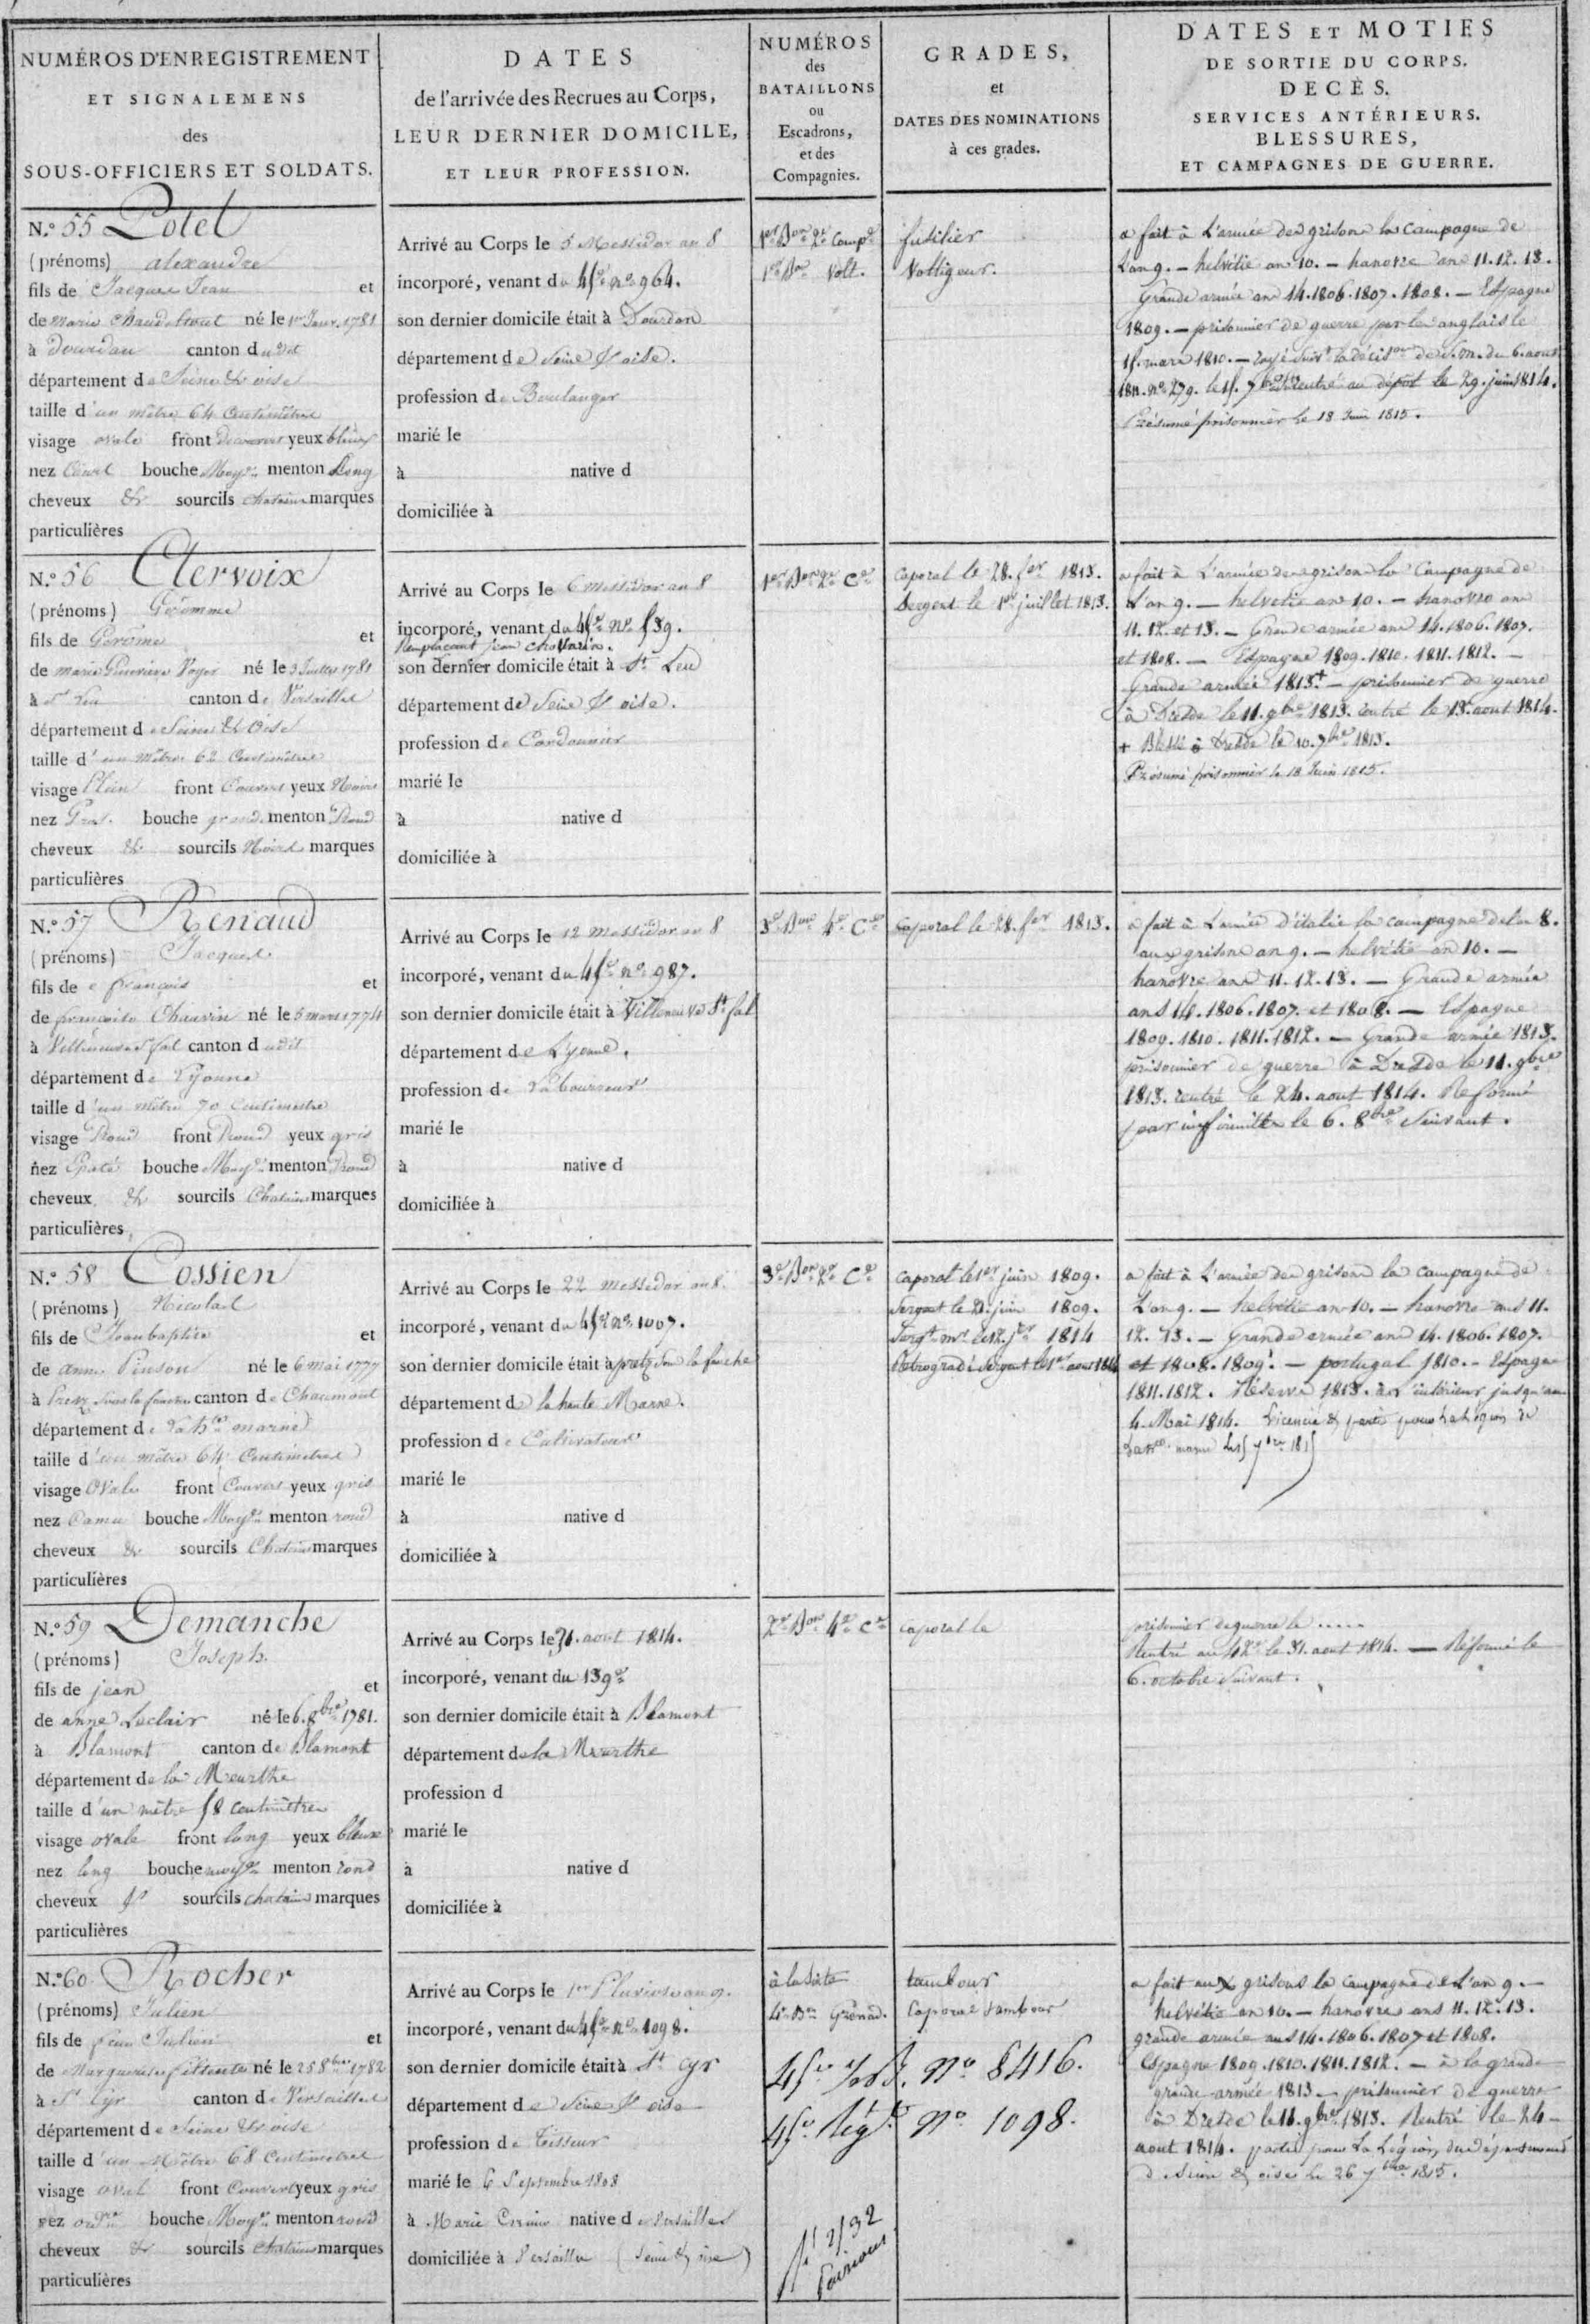 NUMÉROS D'ENREGISTREMENT
ET SIGNALEMENS
des
SOUS-OFFICIERS ET SOLDATS.
DATES
de l'arrivée des Recrues au Corps,
LEUR DERNIER DOMICILE,
ET LEUR PROFESSION.
NUMÉROS
des
BATAILLONS
ou
Escadrons,
et des
Compagnies.
GRADES,
et
DATES DES NOMINATIONS
à ces grades.
DATES ET MOTIFS
DE SORTIE DU CORPS.
DECÈS.
SERVICES ANTÉRIEURS.
BLESSURES,
ET CAMPAGNES DE GUERRE.
N.º 55 Potel
(prénoms) alexandre
fils de Jacques Jean et
de marie né le 1er Janv. 1781
à dourdan canton dudit
département de Seine & oise
taille d'un mètre 64 Centimètres
visage ovale front Decouvert yeux bleux
nez bouche Moyne menton Long
cheveux & sourcils chatains marques
particulières
Arrivé au Corps le 5 Messidor an 8
incorporé, venant du 45e nº 964.
son dernier domicile était à Dourdan
département de Seine & oise.
profession de Boulanger
marié le
à native d
domiciliée à
1er Bon 2e Compe
1er Bon Volt.
fusilier
Voltigeur.
a fait à L'armée des grisons la Campagne de
L'an 9. - helvétie an 10. - hanovre ans 11. 12. 13.
Grande armée ans 14. 1806. 1807. 1808. - Espagne
1809. - prisonnier de guerre par les anglais le
15. mars 1810. - rayé suivt la décision de S.M. du 6. aout
1811. nº 279. le 15. 7bre rentré au dépôt le 29. juin 1814.
Présumé prisonnier le 18 Juin 1815.
N.º 56 Clervoix
(prénoms) Géromme
fils de Gerôme et
de marie Genevieve Voyer né le 3 Juillet 1781
à St Leu canton de Versailles
département de Seine & Oise
taille d'un Mètre 62 Centimètres
visage Plein front Couvert yeux Noirs
nez Gros. bouche grande menton Rond
cheveux & sourcils Noirs marques
particulières
Arrivé au Corps le 6 messidor an 8
incorporé, venant du 45e Nº 539.
Remplaçant jean
son dernier domicile était à St Leu
département de Seine & oise.
profession de Cordonnier
marié le
à native d
domiciliée à
1er Bon 2e Cie
Caporal le 28. fer 1813.
Sergent le 1er juillet 1813.
a fait à L'armée des grisons la Campagne de
L'an 9. - helvetie an 10. - hanovre ans
11. 12. et 13. - Grande armée ans 14. 1806. 1807.
et 1808. - Espagne 1809. 1810. 1811. 1812. -
Grande armée 1813.+ - prisonnier de guerre
à Dresde le 11. 9bre 1813. rentré le 13. aout 1814.
+ Blessé à Dresde le 10. 7bre 1813.
Présumé prisonnier le 18 Juin 1815.
N.º 57 Renaud
(prénoms) Jacques
fils de françois et
de françoise Chauvin né le 5 mars 1774
à Villeneuve St fal canton dudit
département de L'yonne
taille d'un Mètre 70 Centimètre
visage Rond front Rond yeux gris
nez Epaté bouche Moyne menton Rond
cheveux & sourcils Chatains marques
particulières
Arrivé au Corps le 12 messidor an 8
incorporé, venant du 45e nº 987.
son dernier domicile était à Villeneuve St fal
département de L'yonne.
profession de Laboureur
marié le
à native d
domiciliée à
3e Bon 4e Cie
Caporal le 28. fer 1813.
a fait à L'armée d'italie la campagne de l'an 8.
aux grisons an 9. - helvétie an 10. -
hanovre ans 11. 12. 13. - Grande armée
ans 14. 1806. 1807. et 1808. - Espagne
1809. 1810. 1811. 1812. - Grande armée 1813.
prisonnier de guerre à Dresde le 11. 9bre
1813. rentré le 24. aout 1814. Reformé
par infirmités le 6. 8bre Suivant.
N.º 58 Cossien
(prénoms) Nicolas
fils de Jean baptiste et
de anne Pinson né le 6 mai 1777
à Prez Sous la fauche canton de Chaumont
département de La hte marne
taille d'un mètre 64 Centimètres
visage Ovale front Couvert yeux gris
nez Camu bouche Moyne menton rond
cheveux & sourcils Chatains marques
particulières
Arrivé au Corps le 22 messidor an 8.
incorporé, venant du 45e nº 1007.
son dernier domicile était à pretz sous la fauche
département de la haute Marne.
profession de Cultivateur
marié le
à native d
domiciliée à
3e Bon 2e Cie
Caporal le 1er juin 1809.
Sergent le 21. juin 1809.
Sergt mr le 12. jer 1814
Retrogradé Sergent le 1er aout 1814
a fait à L'armée des grisons la campagne de
L'an 9. - helvétie an 10. - hanovre ans 11.
12. 13. - Grande armée ans 14. 1806. 1807.
et 1808. 1809. - portugal 1810. - Espagne
1811. 1812. Réserve 1813. à l'intérieur jusqu'au
4. Mai 1814. Licencié & parti pour la légion de
marne 7bre 1815
N.º 59 Demanche
(prénoms) Joseph.
fils de jean et
de anne Leclair né le 6. 8bre 1781.
à Blamont canton de Blamont
département de la Meurthe
taille d'un mètre 58 centimètres
visage ovale front long yeux bleux
nez long bouche moyne menton rond
cheveux & sourcils chatains marques
particulières
Arrivé au Corps le 31. aout 1814.
incorporé, venant du 139e
son dernier domicile était à Blamont
département de la Meurthe
profession d
marié le
à native d
domiciliée à
2e Bon 4e Cie
Caporal le
prisonier de guerre le .....
Rentré au 42e le 31. aout 1814. - Réformé le
6. octobre Suivant.
N.º 60 Rocher
(prénoms) Julien
fils de feu Julien et
de Marguerite né le 25 8bre 1782
à St Cyr canton de Versailles
département de Seine & oise
taille d'un Mètre 68 Centimetres
visage oval front Couvert yeux gris
nez ordre bouche Moyne menton rond
cheveux & sourcils chatains marques
particulières
Arrivé au Corps le 1er Pluviose an 9.
incorporé, venant du 45e nº 1098.
son dernier domicile était à St Cyr
département de Seine & oise
profession de Tisseur
marié le 6 Septembre 1808
à Marie native de Versailles
domiciliée à Versailles (Seine & oise)
à la Suite
4e Bon Grenad.
tambour
Caporal tambour
45e Nº 8416.
45e Régt Nº 1098.
a fait aux grisons la campagne de L'an 9. -
helvétie an 10. - hanovre ans 11. 12. 13.
grande armée ans 14. 1806. 1807 et 1808.
Espagne 1809. 1810. 1811. 1812. - à la grande
grande armée 1813 - prisonnier de guerre
à Dresde le 11. 9bre 1813. Rentré le 24
aout 1814. parti pour La Légion du département
de Seine & oise le 26 7bre 1815.